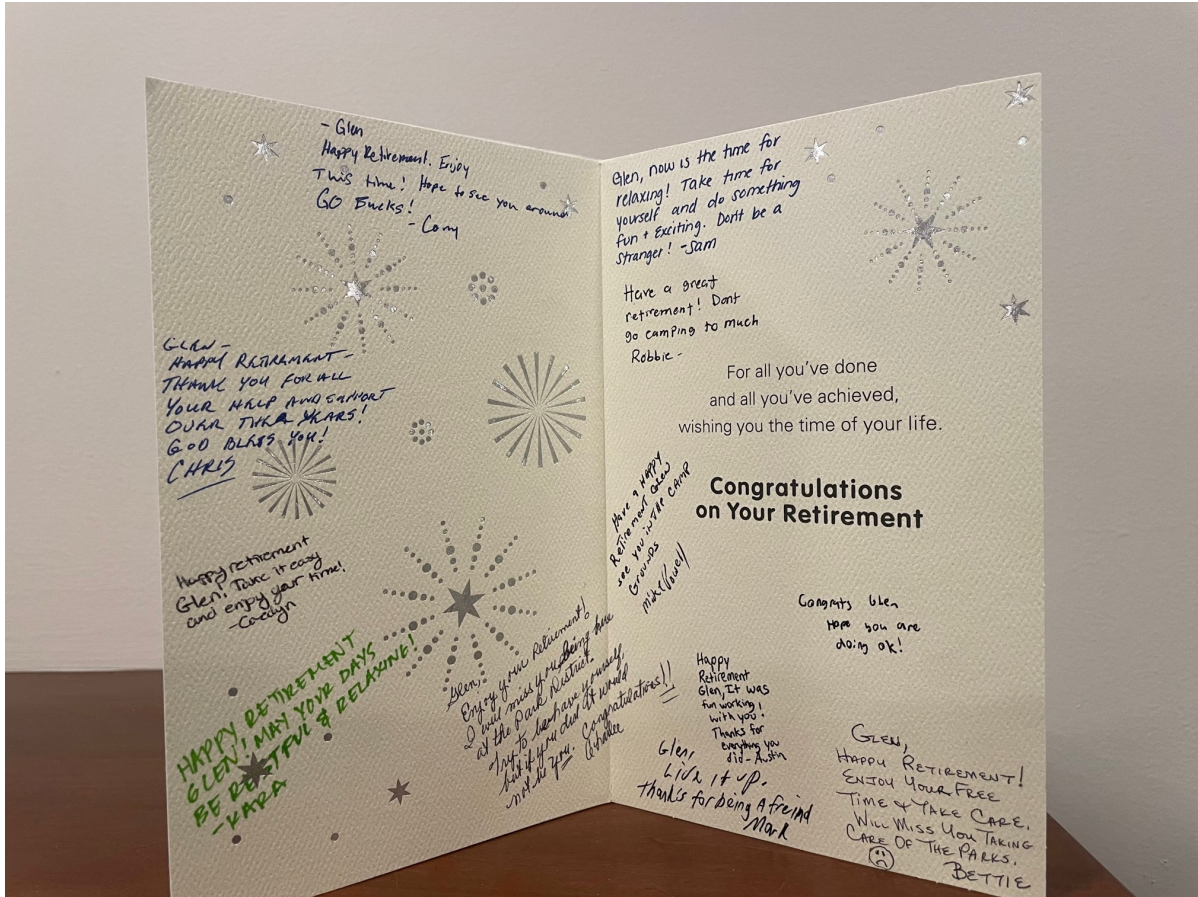 - Glen
Happy Retirement. Enjoy
This time! Hope to see you around
GO Bucks!
- Cory
GLEN -
HAPPY RETIREMENT -
THANK YOU FOR ALL
YOUR HELP AND SUPPORT
OVER THE YEARS!
GOD BLESS YOU!
CHRIS
Happy retirement
Glen! Take it easy
and enjoy your time!
HAPPY RETIREMENT
GLEN! MAY YOUR DAYS
BE RESTFUL & RELAXING!
- KARA
Glen,
Enjoy your Retirement!
I will miss you being here
at the Park District.
Try to behave yourself
but if you did it would
not be you. Congratulations!!
Glen, now is the time for
relaxing! Take time for
yourself and do something
fun + Exciting. Dont be a
stranger! -Sam
Have a great
retirement! Dont
go camping to much
Robbie -
For all you've done
and all you've achieved,
wishing you the time of your life.
Congratulations
on Your Retirement
Have a HAPPY
Retirement Glen
see you in THE CAMP
Grounds
Mike Powell
Congrats Glen
Hope you are
doing ok!
Happy
Retirement
Glen, It was
fun working
with you!
Thanks for
everything you
did - Austin
Glen,
Live it up.
Thank's for being A freind
Mark
GLEN,
HAPPY RETIREMENT!
ENJOY YOUR FREE
TIME & TAKE CARE.
WILL MISS YOU TAKING
CARE OF THE PARKS.
BETTIE